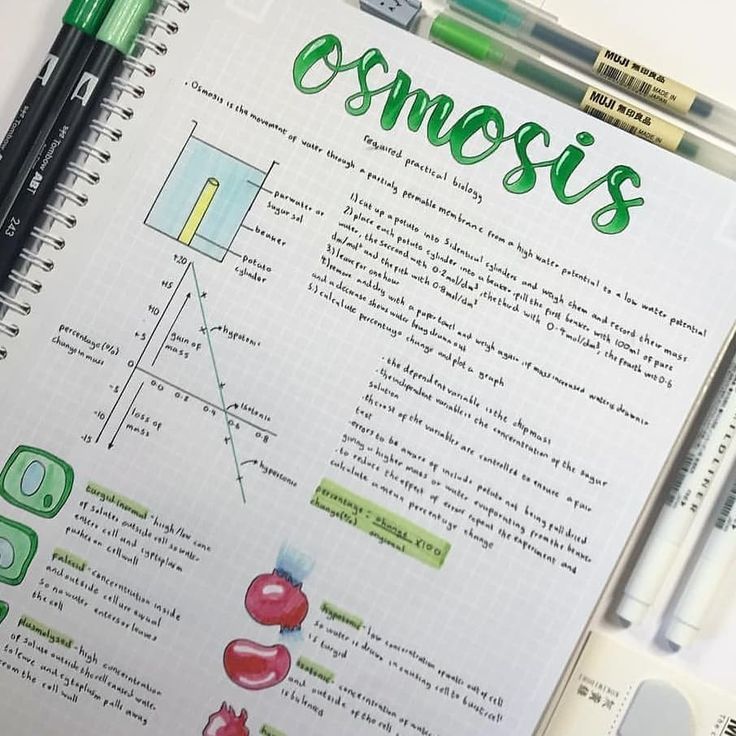 osmosis
required practical biology
. Osmosis is the movement of water through a partially permeable membrane from a high water potential to a low water potential
1) cut up a potato into 5 identical cylinders and weigh them and record their mass
2) place each potato cylinder into a beaker, fill the first beaker with 100ml of pure
water, the second with 0.2mol/dm³, the third with 0.4mol/dm³, the fourth with 0.6
dm/mol³ and the fifth with 0.8mol/dm³
3) leave for one hour
4) remove and dry with a paper towel and weigh again, if mass increased water is drawn in
and a decrease shows water being drawn out
5) calculate percentage change and plot a graph
pure water or
sugar sol
beaker
potato
cylinder
+20
+15
+10
+5
0
-5
-10
-15
percentage (%)
change in mass
gain of
mass
loss of
mass
0.0
0.2
0.4
0.6
0.8
hypotonic
isotonic
hypertonic
. the dependent variable is the chip mass
. the independent variable is the concentration of the sugar
solution
. the rest of the variables are controlled to ensure a fair
test
. errors to be aware of include potato not being fully dried
giving a higher mass or water evaporating from the beaker
. to reduce the effect of error repeat the experiment and
calculate a mean percentage change
percentage = change x100
change (%) original
turgid/normal - high/low conc
of solute outside cell so water
enters cell and cytoplasm
pushes on cell wall
flaccid - concentration inside
and outside cell are equal
so no water enters or leaves
the cell
plasmolysed - high concentration
of solute outside the cell caused water
to leave and cytoplasm pulls away
from the cell wall
hypotonic - low concentration of water out of cell
so water is drawn in causing cell to burst/cell
is turgid
isotonic - concentration of water
and outside of the cell
is balanced
MUJI 無印良品
MADE IN
JAPAN
MUJI 無印良品
MADE IN
Tombow ABT
243
Tombow ABT
MILDLINER